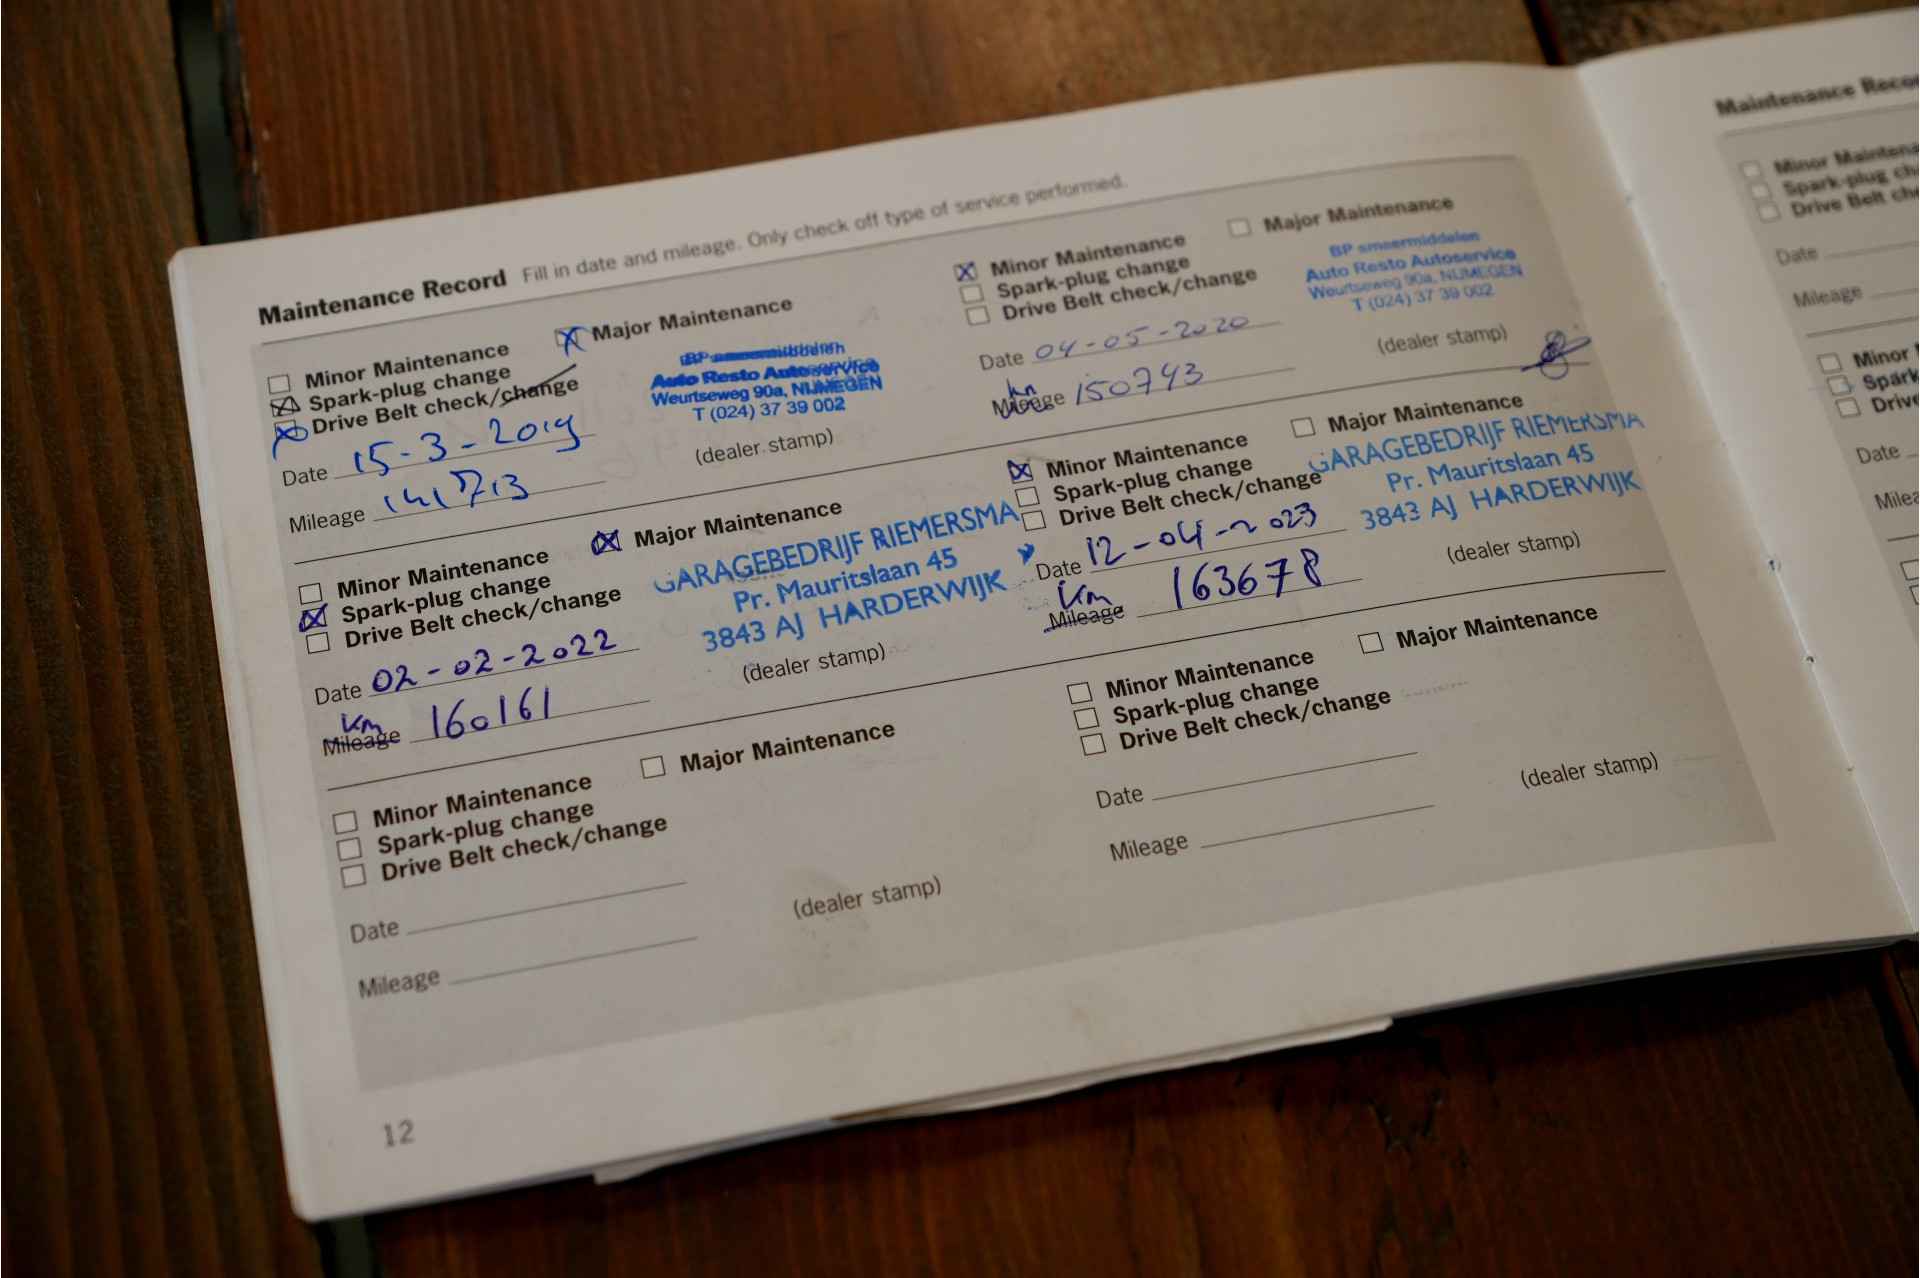 Maintenance Record Fill in date and mileage. Only check off type of service performed.
Minor Maintenance
Major Maintenance
Spark-plug change
Drive Belt check/change
BP smeermiddelen
Auto Resto Autoservice
Weurtseweg 90a, NIJMEGEN
T (024) 37 39 002
Date 15-3-2019
(dealer stamp)
Mileage 141713
Minor Maintenance
Major Maintenance
Spark-plug change
Drive Belt check/change
BP smeermiddelen
Auto Resto Autoservice
Weurtseweg 90a, NIJMEGEN
T (024) 37 39 002
Date 04-05-2020
(dealer stamp)
km
Mileage 150743
Minor Maintenance
Major Maintenance
Spark-plug change
Drive Belt check/change
GARAGEBEDRIJF RIEMERSMA
Pr. Mauritslaan 45
3843 AJ HARDERWIJK
Date 02-02-2022
(dealer stamp)
km
Mileage 160161
Minor Maintenance
Major Maintenance
Spark-plug change
Drive Belt check/change
GARAGEBEDRIJF RIEMERSMA
Pr. Mauritslaan 45
3843 AJ HARDERWIJK
Date 12-04-2023
(dealer stamp)
km
Mileage 163678
Minor Maintenance
Major Maintenance
Spark-plug change
Drive Belt check/change
Date
(dealer stamp)
Mileage
Minor Maintenance
Major Maintenance
Spark-plug change
Drive Belt check/change
Date
(dealer stamp)
Mileage
12
Maintenance Recor
Minor Maintena
Spark-plug cha
Drive Belt che
Date
Mileage
Minor
Spark
Drive
Date
Milea